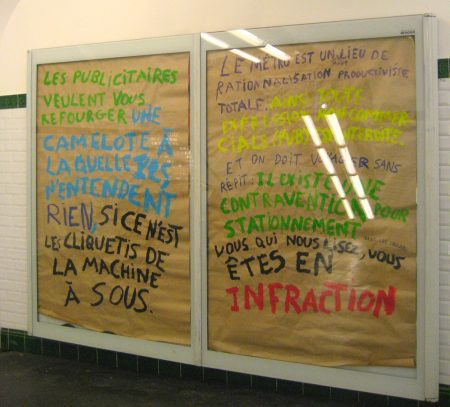 LES PUBLICITAIRES
VEULENT VOUS
REFOURGER UNE
CAMELOTE À
LAQUELLE ILS
N'ENTENDENT
RIEN, SI CE N'EST
LES CLIQUETIS DE
LA MACHINE
À SOUS.
LE MÉTRO EST UN LIEU DE
RATIONNALISATION PRODUCTIVISTE
TOTALE.
ET ON DOIT VOYAGER SANS
RÉPIT: IL EXISTE UNE
CONTRAVENTION POUR
STATIONNEMENT
VOUS QUI NOUS LISEZ, VOUS
ÊTES EN
INFRACTION